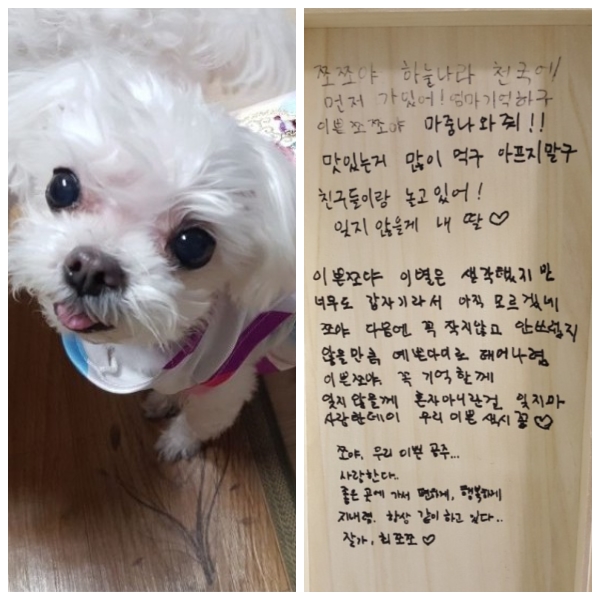 쪼쪼야 하늘나라 천국에
먼저 가있어! 엄마기억하구
이쁜쪼쪼야 마중나와줘!!
맛있는거 많이 먹구 아프지말구
친구들이랑 놀고있어!
잊지 않을게 내 딸♡
이쁜쪼야 이별은 생각했지만
너무도 갑자기라서 아직 모르겠네
쪼야 다음엔 꼭 작지않고 안쓰럽지
않을만큼 예쁜아이로 태어나렴
이쁜쪼야. 꼭 기억한께
잊지않을께 혼자아니란걸 잊지마
사랑한데이 우리이쁜 색시꽁♡
쪼야. 우리 이쁜 공주...
사랑한다..
좋은 곳에 가서 편하게, 행복하게
지내렴. 항상 같이 하고 있다..
잘가, 최쪼쪼♡